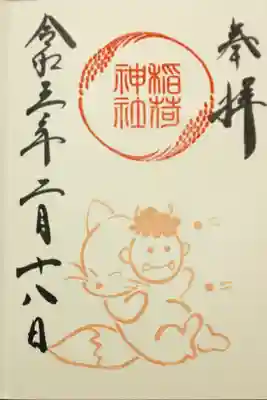 奉拝
稲荷
神社
令和三年二月十八日